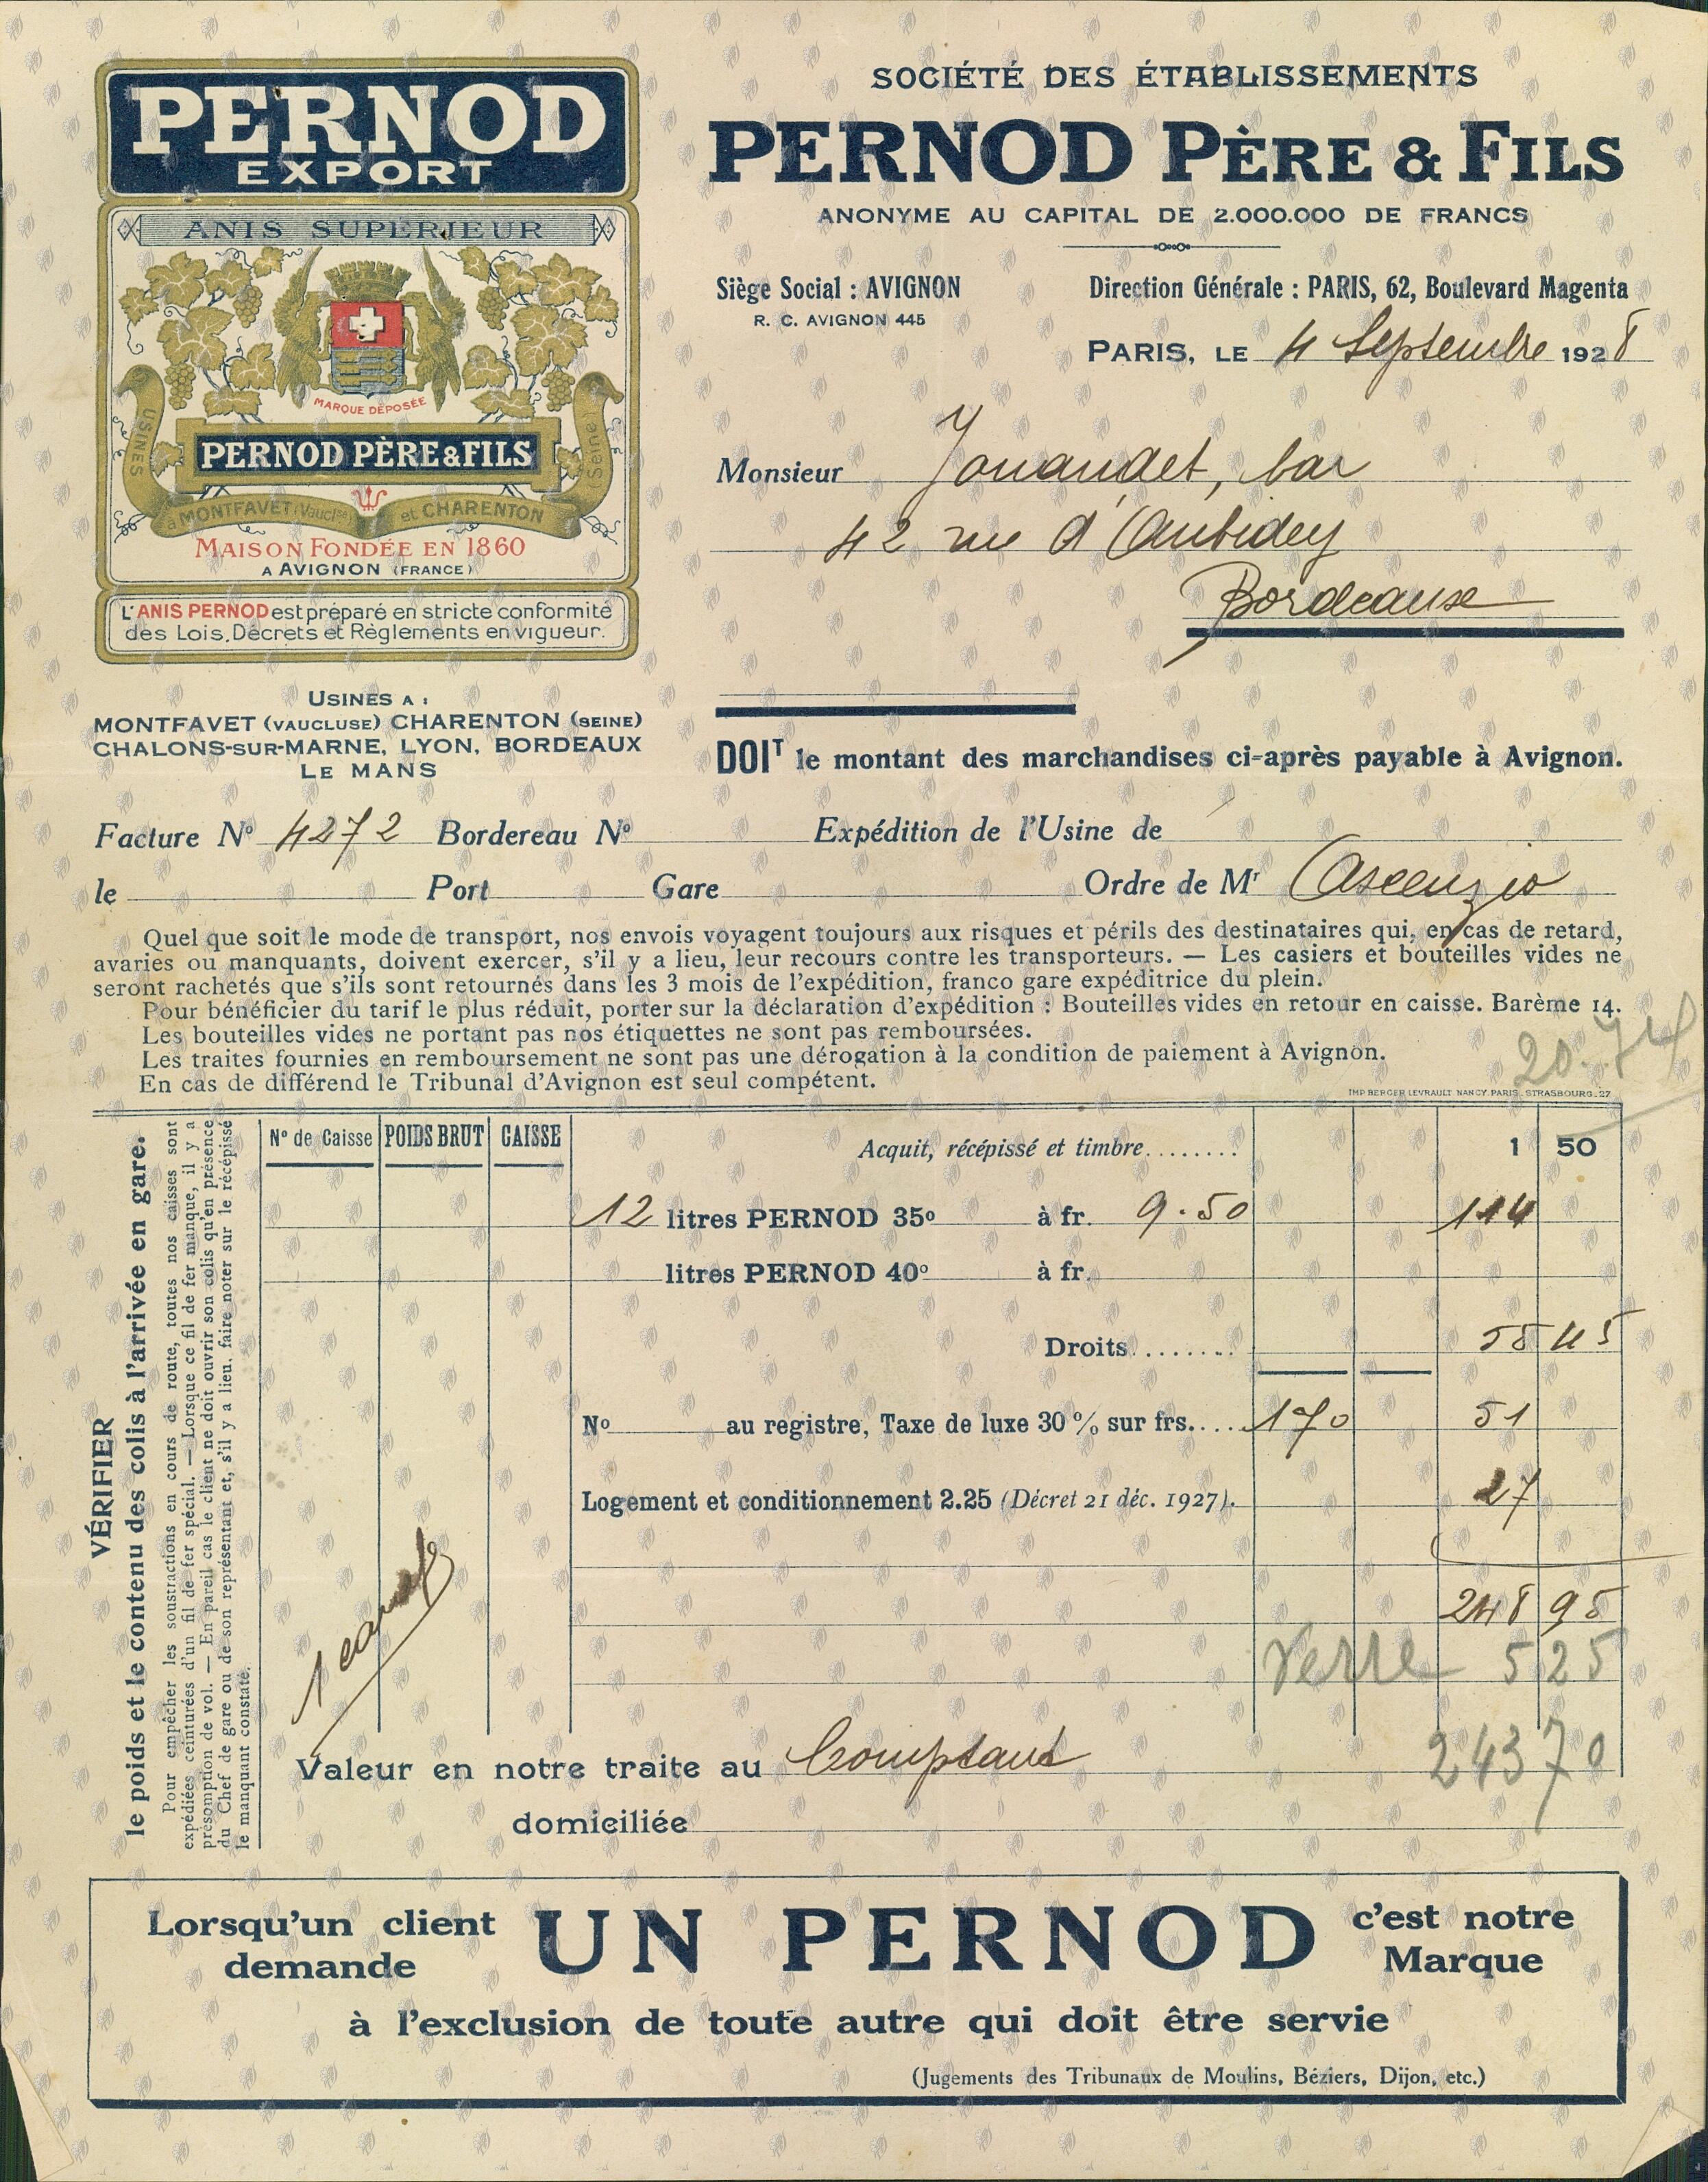 PERNOD
EXPORT
ANIS SUPERIEUR
MARQUE DÉPOSÉE
PERNOD PÈRE & FILS
USINES
à MONTFAVET (Vaucl^se) et CHARENTON
Seine
MAISON FONDÉE EN 1860
A AVIGNON (FRANCE)
L'ANIS PERNOD est préparé en stricte conformité
des Lois, Décrets et Règlements en vigueur.
USINES A :
MONTFAVET (VAUCLUSE) CHARENTON (SEINE)
CHALONS-SUR-MARNE, LYON, BORDEAUX
LE MANS
SOCIÉTÉ DES ÉTABLISSEMENTS
PERNOD PÈRE & FILS
ANONYME AU CAPITAL DE 2.000.000 DE FRANCS
Siège Social : AVIGNON Direction Générale : PARIS, 62, Boulevard Magenta
R. C. AVIGNON 445
PARIS, LE 4 Septembre 1928
Monsieur Jouandet, bar
42 rue d'Aubidey
Bordeaux
DOIT le montant des marchandises ci-après payable à Avignon.
Facture N° 4272 Bordereau N° Expédition de l'Usine de
le Port Gare Ordre de Mr Ascenzio
Quel que soit le mode de transport, nos envois voyagent toujours aux risques et périls des destinataires qui, en cas de retard,
avaries ou manquants, doivent exercer, s'il y a lieu, leur recours contre les transporteurs. — Les casiers et bouteilles vides ne
seront rachetés que s'ils sont retournés dans les 3 mois de l'expédition, franco gare expéditrice du plein.
Pour bénéficier du tarif le plus réduit, porter sur la déclaration d'expédition : Bouteilles vides en retour en caisse. Barème 14.
Les bouteilles vides ne portant pas nos étiquettes ne sont pas remboursées.
Les traites fournies en remboursement ne sont pas une dérogation à la condition de paiement à Avignon.
En cas de différend le Tribunal d'Avignon est seul compétent.
20.74
IMP BERGER LEVRAULT NANCY. PARIS. STRASBOURG. 27
VÉRIFIER
le poids et le contenu des colis à l'arrivée en gare.
Pour empêcher les soustractions en cours de route, toutes nos caisses sont
expédiées ceinturées d'un fil de fer spécial. — Lorsque ce fil de fer manque, il y a
présomption de vol. — En pareil cas le client ne doit ouvrir son colis qu'en présence
du Chef de gare ou de son représentant et, s'il y a lieu, faire noter sur le récépissé
le manquant constaté.
N° de Caisse POIDS BRUT CAISSE
Acquit, récépissé et timbre........ 1 50
12 litres PERNOD 35° à fr. 9.50 114
litres PERNOD 40° à fr.
Droits....... 55 45
N° au registre, Taxe de luxe 30 % sur frs.... 170 51
Logement et conditionnement 2.25 (Décret 21 déc. 1927). 27
248 95
Verre 5 25
243 70
1
Valeur en notre traite au Comptant
domiciliée
Lorsqu'un client demande UN PERNOD c'est notre Marque
à l'exclusion de toute autre qui doit être servie
(Jugements des Tribunaux de Moulins, Béziers, Dijon, etc.)